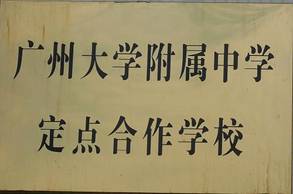 广州大学附属中学
定点合作学校